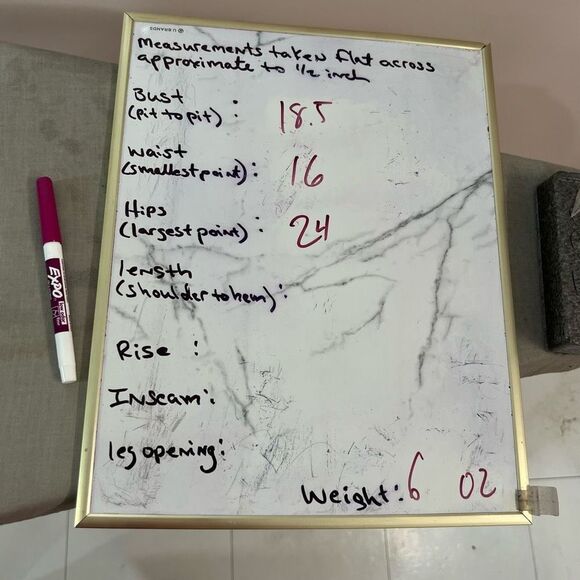 U BRANDS
Measurements taken flat across
approximate to 1/2 inch
Bust
(pit to pit) : 18.5
Waist
(smallest point) : 16
Hips
(largest point) : 24
length
(shoulder to hem) :
Rise :
Inseam :
leg opening :
Weight : 6 oz
EXPO